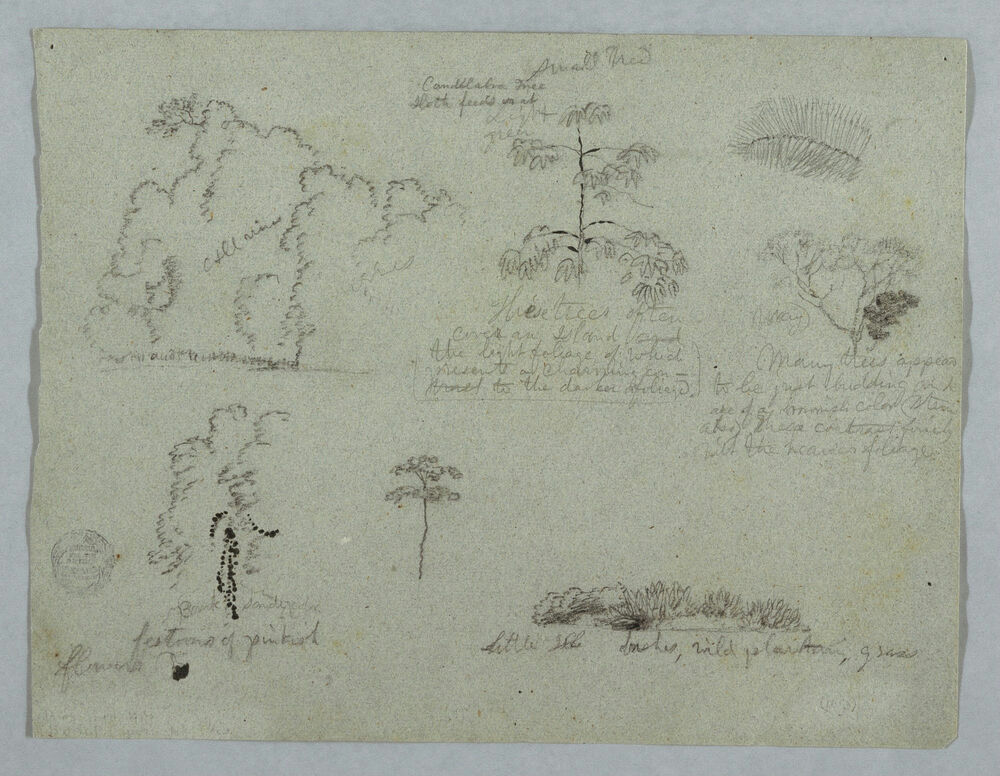 Small Tree
Candelabra Tree
Sloth feeds on it
Light
green
all vine
These trees often
cover an Island and
the light foliage of which
presents a charming con-
trast to the darker foliage.
(gray)
Many trees appear
to be just budding and
are of a brownish color (stem
also) These contrast finely
with the heavier foliage
Bank
festoons of pinkish
flowers
little
bushes, wild plantain, grass